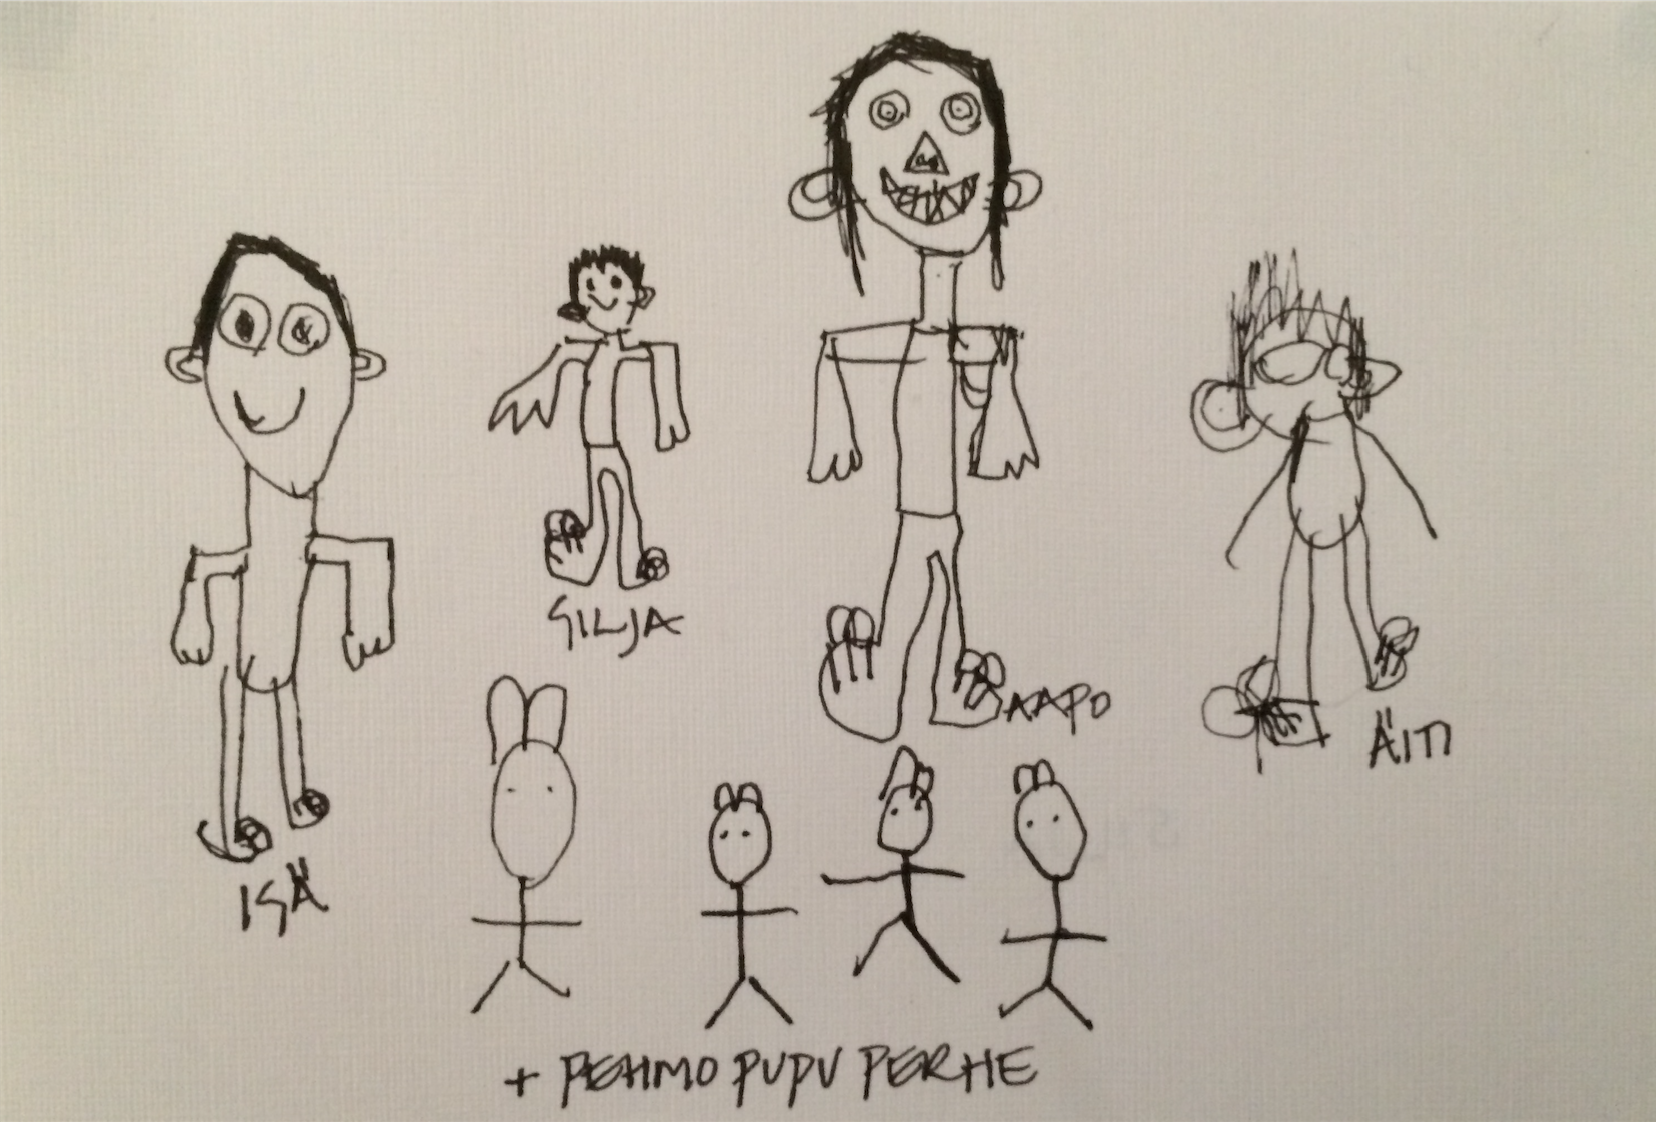 SILJA
AAPO
ÄITI
ISÄ
+ PEHMO PUPU PERHE